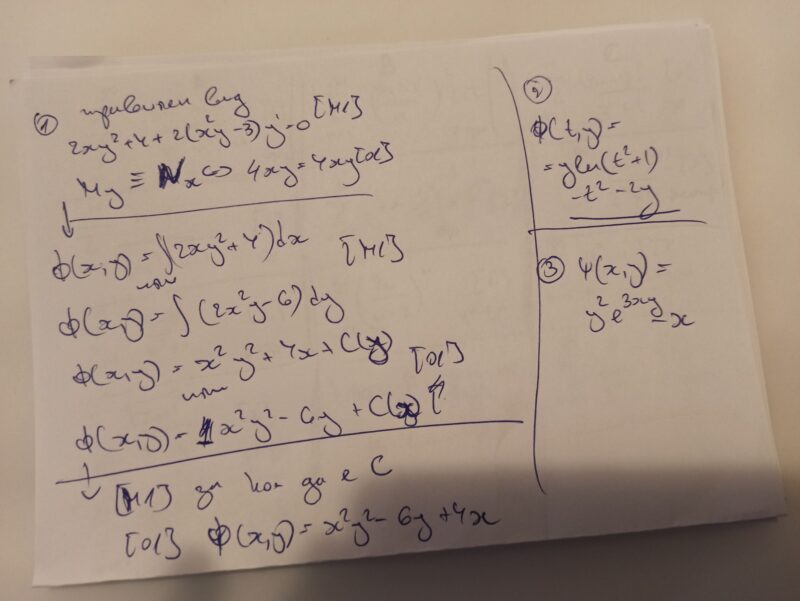 ① правилен вид
2xy²+4+2(x²y-3)y'=0 [M1]
My ≡ Nx ⇔ 4xy=4xy [01]
↓
ϕ(x,y) = ∫(2xy²+4)dx [M1]
или
ϕ(x,y) = ∫(2x²y-6)dy
ϕ(x,y) = x²y²+4x+C(y) [01]
или
ϕ(x,y) = x²y²-6y+C(x)
↓ [M1] за кое да е C
[01] ϕ(x,y) = x²y²-6y+4x
②
ϕ(t,y) =
= yln(t²+1)
-t²-2y
③ ψ(x,y) =
y²e^3xy - x